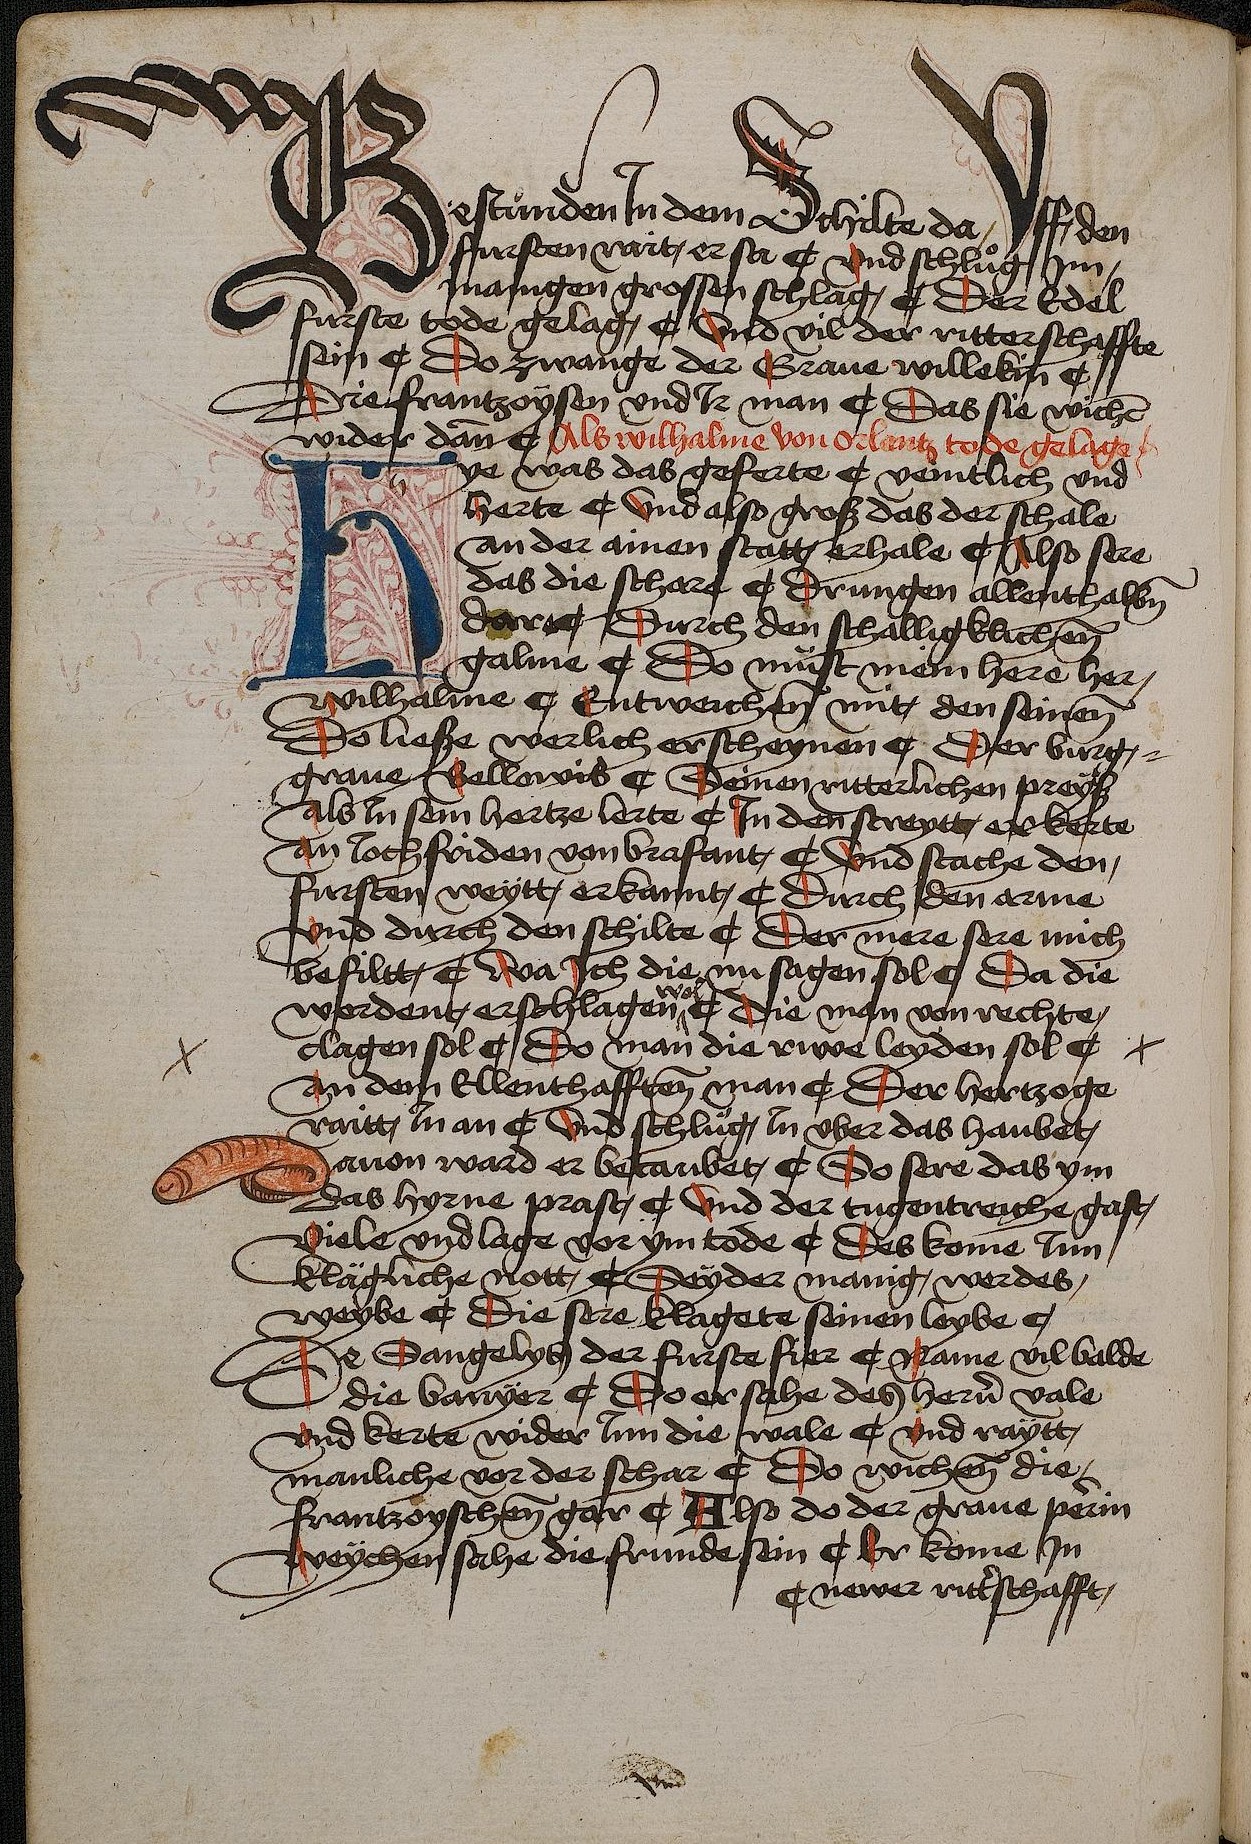 Bestunden In dem Schilte da / Vff den
fursten rait / er sa ¶ Vnd schlůg Im /
manigen grossen schlag / ¶ Der Edel
furste tode gelag / ¶ Vnd vil der ritterschaffte
sein ¶ Do zwange der Graue willekin ¶
Die frantzoÿsen vnd Ir man ¶ Das sie wichē
wider dañ ¶ Als wilhalme von Orlantz tode gelage /
Hye was das geferte ¶ veintlich vnd
herte ¶ Vnd also groß das der schale
an der ainen statt / erhale ¶ Also sere
das die schare ¶ Drungen allenthalbñ
dar ¶ Durch den schalligklichen̄
galme ¶ Do můst mein here her /
wilhalme ¶ Entweichen̄ mit / den seinen̄
Do ließe werlich erscheynen ¶ Der burg / =
graue Bellowis ¶ Seinen ritterlichen preÿß
als In sein hertze lerte ¶ In den streytt / er kerte
an Jochfriden von brafant / ¶ Vnd stache den /
fursten weÿtt / erkannt / ¶ Durch den arme
vnd durch den schilte ¶ Der mere sere mich
befiltt / ¶ Wa Ich die nu sagen sol ¶ Da die
werdent / erschlagen̄ wol ¶ Die man von rechte /
clagen sol ¶ Do man die rwe leyden sol ¶
an dem Ellenthafften̄ man ¶ Der hertzoge
raitt / In an ¶ Vnd schlůg / In vber das haubet /
Dauon ward er betaubet / ¶ So sere das ym
das hyrne prast / ¶ Vnd der tugentreiche gast /
Viele vnd lage vor ym tode ¶ Des kome Inn
klägliche nott / ¶ Seÿder manig / werdes /
weybe ¶ Die sere klagete seinen leybe ¶
De Sangelys der furste fier ¶ Name vil balde
die banÿer ¶ Do er sahe des herñ vale
vnd kerte wider Inn die wale ¶ Vnd raÿtt /
manliche vor der schar ¶ Do wichen̄ die /
frantzoyschen̄ gar ¶ Also do der graue perin
weÿchen sahe die frunde sein ¶ Er kome In
¶ newer rittʼschafft /